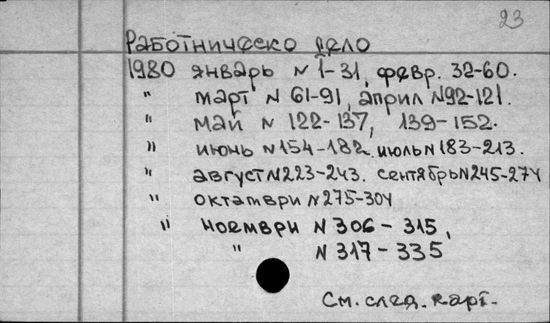 23
Работническо дело
1980 январь N 1-31, февр. 32-60.
" март N 61-91, април N92-121.
" май N 122-137, 139-152.
" июнь N154-182 июль N183-213.
" август N223-243. сентябрь N245-274
" октамври N275-304
" ноември N 306-315,
" N 317-335
См. след. карт.